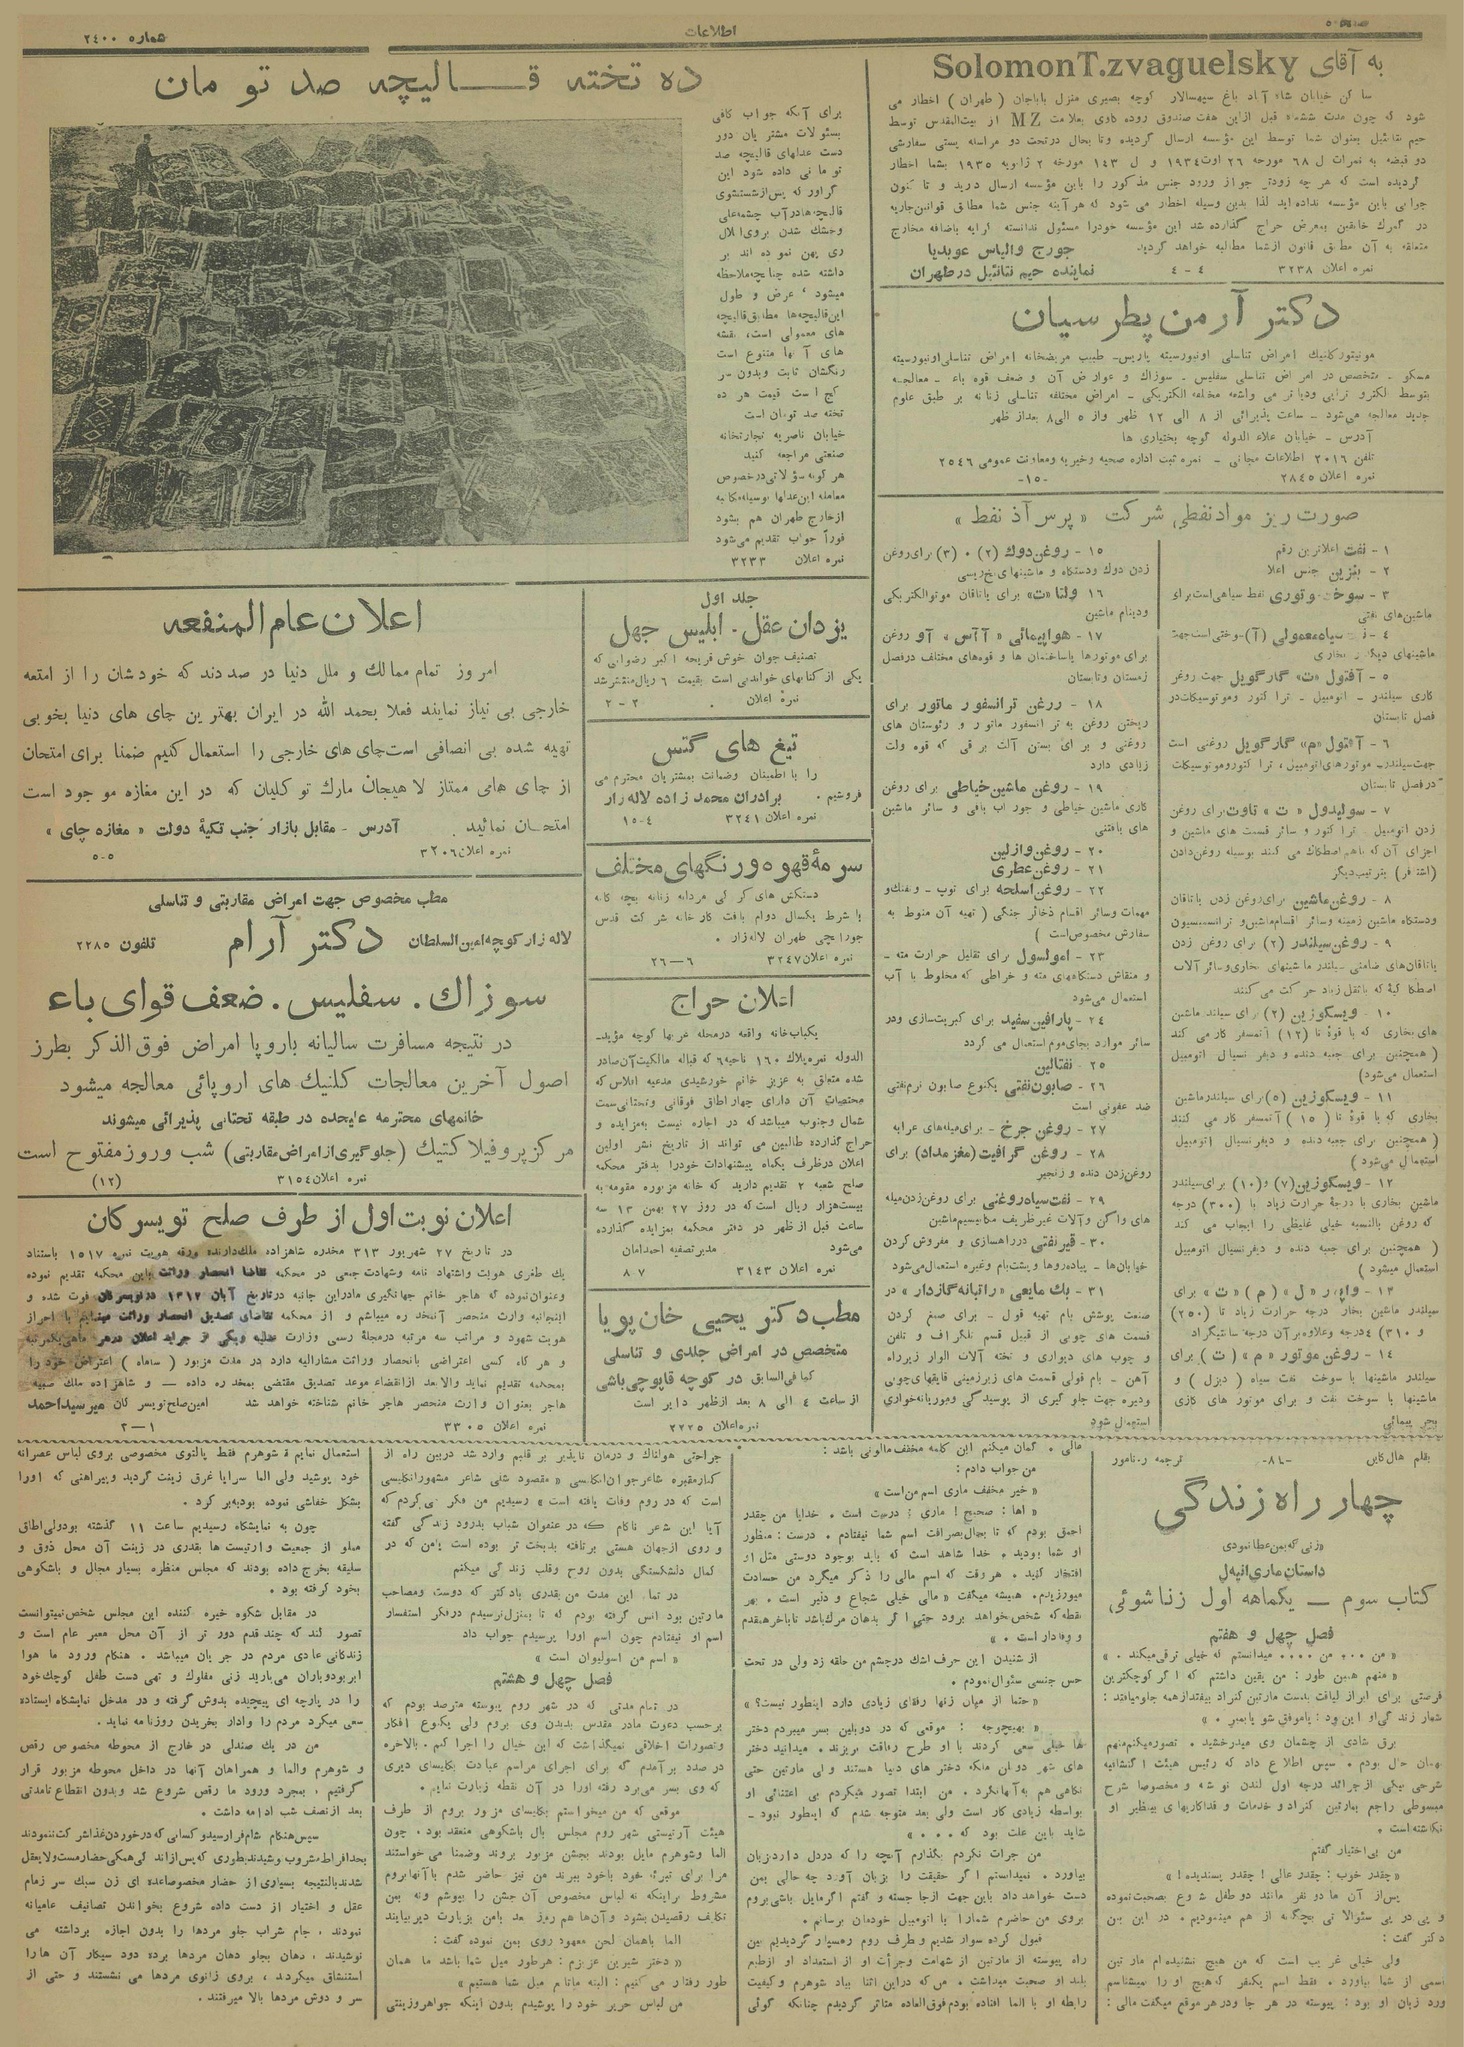 اطلاعات
شماره ۲٤۰۰
به آقای SolomonT.zvaguelsky
ساکن خیابان شاه آباد باغ سپهسالار کوچه بصیری منزل باباجان ( طهران ) اخطار می
شود که چون مدت ششماه قبل ازاین هفت صندوق روده گاوی بعلامت MZ از بیت‌المقدس توسط
گردیده است که هر چه زودتر جواز ورود جنس مذکور را باین مؤسسه ارسال درید و تا کنون
جوابی باین مؤسسه نداده اید لذا بدین وسیله اخطار می شود که هر آینه جنس شما مطابق قوانین جاریه
در گمرك خانقین بمعرض حراج گذارده شد این مؤسسه خودرا مسئول ندانسته کرایه باضافه مخارج
متعلقه به آن مطابق قانون ازشما مطالبه خواهد گردید
جورج والیاس عوبدیا
نمره اعلان ۳۲۳۸ ٤ - ٤
نماینده حیم نتانئیل درطهران
دکتر آرمن پطرسیان
مسکو - متخصص در امراض تناسلی سفلیس - سوزاك و عوارض آن و ضعف قوه باء - معالجه
جدید معالجه می‌شود - ساعت پذیرائی از ۸ الی ۱۲ ظهر واز ۵ الی ۸ بعداز ظهر
آدرس - خیابان علاء الدوله کوچه بختیاری ها
تلفن ۲۰۱٦ اطلاعات مجانی - نمره ثبت اداره صحیه وخیریه ومعاونت عمومی ۲٥٤٦
نمره اعلان ۲۸٤٥ -۱۵-
صورت ریز موادنفطی شرکت « پرس آذ نفط »
۱ - نفت اعلاترین رقم
۲ - بنزین جنس اعلا
ماشین‌های نفتی
۵ - آفتول «ت» گارگویل جهت روغن
کاری سیلندر - اتومبیل - تراکتور وموتوسیکلت‌در
فصل تابستان
٦ - آفتول «م» گارگویل روغنی است
جهت‌سیلندر- موتورهای‌اتومبیل، تراکتوروموتوسیکلت
درفصل زمستان
۷ - سولیدول « ت » تاوت برای روغن
زدن اتومبیل - تراکتور و سائر قسمت های ماشین و
اجزای آن که باهم اصطکاك می کنند بوسیله روغن‌دادن
۸ - روغن ماشین برای‌روغن زدن یاتاقان
۹ - روغن‌سیلندر (۲) برای روغن زدن
۱۰ - ویسکوزین (۲) برای سیلندر ماشین
های بخاری که با قوۀ تا (۱۲) آتمسفر کار می کند
( همچنین برای جعبه دنده و دیفرنسیال اتومبیل
استعمال می‌شود)
۱۱ - ویسکوزین (۵)برای سیلندرماشین
بخاری که با قوۀ تا ( ۱۵ ) آتمسفر کار می کنند
( همچنین برای جعبه دنده و دیفرنسیال اتومبیل
استعمال می‌شود )
۱۲ - ویسکوزین(۷) و(۱۰) برای‌سیلندر
ماشین بخاری با درجۀ حرارت زیاد با (۳۰۰) درجه
که روغن بالنسبه خیلی غلیظی را ایجاب می کند
( همچنین برای جعبه دنده و دیفرنسیال اتومبیل
استعمال میشود )
سیلندر ماشین بخار درجه حرارت زیاد تا (۲۵۰)
۱٤ - روغن موتور «م» ( ت ) برای
سیلندر ماشینها با سوخت نفت سیاه ( دیزل ) و
ماشینها با سوخت نفت و برای موتور های گازی
بحر پیمائی
۱۵ - روغن‌دوك (۲) ۰ (۳) برای‌روغن
زدن دوك ودستگاه و ماشینهای‌نخ‌ریسی
۱٦ - ولتا «ت» برای یاتاقان موتوالکتریکی
ودینام ماشین
برای موتورها باساختمان ها و قوه‌های مختلف درفصل
زمستان وتابستان
۱۸ - روغن ترانسفور ماتور برای
زیادی دارد
۱۹ - روغن ماشین‌خیاطی برای روغن
کاری ماشین خیاطی و جوراب بافی و سائر ماشین
های بافتنی
۲۰ - روغن‌وازلین
۲۱ - روغن‌عطری
۲۲ - روغن‌اسلحه برای توپ - وتفنك‌و
مهمات وسائر اقسام ذخائر جنگی ( تهیه آن منوط به
سفارش مخصوص‌است )
۲۳ - امولسول برای تقلیل حرارت مته -
و منقاش دستگاههای مته و خراطی که مخلوط با آب
استعمال می‌شود
۲٤ - پارافین‌سفید برای کبریت‌سازی ودر
سائر موارد بجای‌موم استعمال می گردد
۲۵ - نفتالین
۲٦ - صابون‌نفتی یکنوع صابون نرم‌نفتی
ضد عفونی است
۲۷ - روغن چرخ - برای‌میله‌های عرابه
۲۸ - روغن گرافیت (مغزمداد) برای
روغن‌زدن دنده و زنجیر
۲۹ - نفت‌سیاه‌روغنی برای روغن‌زدن‌میله
های واگن وآلات غیرظریف مکانیسم‌ماشین
۳۰ - قیرنفتی درراهسازی و مفروش کردن
خیابان‌ها - پیاده‌روها وپشت‌بام وغیره استعمال‌می‌شود
صنعت پوشش بام تهیه قول - برای صمغ کردن
قسمت های چوبی از قبیل قسم تلگراف و تلفن
و چوب های دیواری و تخته آلات الوار زیرراه
آهن - بام قولی قسمت های زیرزمینی قایقهای‌چوبی
وغیره جهت جلوگیری از پوسیدگی وموریانه‌خواری
استعمال شود
ده تخته قـــالیچه صد تو مان
برای آنکه جواب کافی
بسئوالات مشتریان دور
دست عدلهای قالیچه صد
تومانی داده شود این
گراور که پس‌ازشستشوی
قالیچه‌هادرآب چشمه‌علی
وخشك شدن بروی‌اتلال
ری پهن نموده اند بر
داشته شده چنانچه‌ملاحظه
میشود ، عرض و طول
این‌قالیچه‌ها مطابق‌قالیچه
های معمولی است، نقشه
های آنها متنوع است
رنگشان ثابت وبدون سر
کج است قیمت هر ده
تخته صد تومان است
خیابان ناصریه تجارتخانه
صنعتی مراجعه کنید
هر گونه سؤالاتی‌درخصوص
معامله این‌عدلها بوسیله‌مکاتبه
ازخارج طهران هم بشود
فوراً جواب تقدیم می‌شود
نمره اعلان ۳۲۳۳
جلد اول
یزدان عقل . ابلیس جهل
تصنیف جوان خوش قریحه اکبر رضوانی که
یکی از کتابهای خواندنی است بقیمت ٦ ریال‌منتشرشد
نمره اعلان ۲ - ۲
تیغ های گتس
را با اطمینان وضمانت بمشتریان محترم می
فروشیم. برادران محمد زاده لاله زار
نمره اعلان ۳۲٤۱ ٤-۱۵
سرمۀ قهوه ورنگهای مختلف
دستکش های کرکی مردانه زنانه بچه گانه
با شرط یکسال دوام بافت کارخانه شرکت قدس
جورابچی طهران لاله‌زار .
نمره اعلان ۳۲٤۷ ٦—۲٦
اعلان حراج
یکباب‌خانه واقعه درمحله عربها کوچه مؤید-
الدوله نمره‌پلاك ۱٦۰ ناحیه ٦ که قباله مالکیت‌آن‌صادر
شده متعلق به عزیز خانم خورشیدی مدعیه افلاس که
مختصات آن دارای چهار اطاق فوقانی وتحتانی‌سمت
شمال وجنوب میباشدکه در اجاره نیست بمزایده و
حراج گذارده طالبین می توانند از تاریخ نشر اولین
اعلان درظرف یکماه پیشنهادات خودرا بدفتر محکمه
صلح شعبه ۲ تقدیم دارند که خانه مزبوره مقومه به
بیست‌هزار ریال است‌که در روز ۲۷ بهمن ۱۳ سه
ساعت قبل از ظهر در دفتر محکمه بمزایده گذارده
می‌شود مدیرتصفیه احمدامان
نمره اعلان ۳۱٤۳ ۷ ۸
مطب دکتر یحیی خان پویا
متخصص در امراض جلدی و تناسلی
کمافی‌السابق در کوچه قاپوچی‌باشی
از ساعت ٤ الی ۸ بعد ازظهر دایر است
نمره‌اعلان ۲۲۲۵
اعلان عام المنفعه
امروز تمام ممالك و ملل دنیا در صددند که خودشان را از امتعه
خارجی بی نیاز نمایند فعلا بحمد الله در ایران بهترین چای های دنیا بخوبی
تهیه شده بی انصافی است‌چای های خارجی را استعمال کنیم ضمنا برای امتحان
از چای هامی ممتاز لاهیجان مارك توکلیان که در این مغازه موجود است
امتحان نمائید. آدرس - مقابل بازار جنب تکیۀ دولت « مغازه چای »
نمره اعلان ۳۲۰٦ ٥-٥
مطب مخصوص جهت امراض مقاربتی و تناسلی
لاله زار کوچه امین السلطان دکتر آرام تلفون ۲۲۸٥
سوزاك . سفلیس . ضعف قوای باء
در نتیجه مسافرت سالیانه باروپا امراض فوق الذکر بطرز
اصول آخرین معالجات کلنیك های اروپائی معالجه میشود
خانمهای محترمه علیحده در طبقه تحتانی پذیرائی میشوند
مرکز پروفیلاکتیك (جلوگیری از امراض مقاربتی) شب وروز مفتوح است
نمره اعلان ۳۱٥٤ (۱۲)
اعلان نوبت اول از طرف صلح تویسرکان
در تاریخ ۲۷ شهریور ۳۱۳ مخدره شاهزاده ملك‌دارنده ورقه هویت نمره ۱٥۱۷ باستناد
یك طغری هویت واشتهاد نامه وشهادت جمعی در محکمه تقاضا انحصار وراثت باین محکمه تقدیم نموده
و هر گاه کسی اعتراضی بانحصار وراثت مشارالیه دارد در مدت مزبور ( سه‌ماه ) اعتراض خود را
بمحکمه تقدیم نماید والا بعد ازانقضاء موعد تصدیق مقتضی بمخدره داده — و شاهزاده ملك صبیه
هاجر بعنوان وارث منحصر هاجر خانم شناخته خواهد شد امین‌صلح‌تویسرکان میرسیداحمد
نمره اعلان ۳۳۰٥ ۱—۲
بقلم هال‌کاین -۸۱- ترجمه ره‌نامور
چهار راه زندگی
«زنی که بمن‌عطانمودی
داستان ماری‌انیه‌ل
کتاب سوم — یکماهه اول زناشوئی
فصل چهل و هفتم
« من ۰۰۰ من ۰۰۰۰ میدانستم که خیلی ترقی‌میکند . »
« منهم همین طور : من یقین داشتم که اگر کوچکترین
فرصتی برای ابراز لیاقت بدست مارتین کنراد بیفتدازهمه جلومیافتد :
شعار زندگی‌او این‌بود : یاموفق شو یابمیر . »
برق شادی از چشمان وی میدرخشید . تصورمیکنم‌منهم
بهمان حال بودم . سپس اطلاع داد که رئیس هیئت اکتشافیه
شرحی بیکی از جرائد درجه اول لندن نوشته و مخصوصا شرح
مبسوطی راجع بمارتین کنراد و خدمات و فداکاریهای بینظیر او
نگاشته است .
من بی اختیار گفتم
« چقدر خوب : چقدر عالی ! چقدر پسندیده ! »
پس از آن ما دو نفر مانند دو طفل شروع بصحبت‌نموده
و پی در پی سئوالاتی بچگانه از هم مینمودیم . در این بین
دکتر گفت :
ولی خیلی غریب است که من هیچ نشنیده‌ام مارتین
اسمی از شما بیاورد . فقط اسم یکنفر که‌هیچ او را نمیشناسم
ورد زبان او بود : پیوسته در هر جا ودرهر موقع میگفت مالی :
مالی . گمان میکنم این کلمه مخفف مالونی باشد :
من جواب دادم :
« خیر مخفف ماری اسم من‌است »
« اها : صحیح ! ماری ؛ درست است . خدایا من چقدر
احمق بودم که تا بحال‌بصرافت اسم شما نیفتادم . درست : منظور
او شما بودید . خدا شاهد است که باید بوجود دوستی مثل او
افتخار کنید . هر وقت که اسم مالی را ذکر میکرد من حسادت
میورزیدم . همیشه میگفت « مالی خیلی شجاع و دلیر است . بهر
نقطه‌که شخص‌خواهد برود حتی اگر بدهان مرك‌باشد تاباخرهمقدم
و وفادار است . »
از شنیدن این حرف اشك درچشم من حلقه زد ولی در تحت
حس جنسی سئوال‌نمودم .
« حتما از میان زنها رفقای زیادی دارد اینطور نیست؟ »
« بهیچوجه : موقعی که در دوبلین بسر میبردم دختر
ها خیلی سعی کردند با او طرح رفاقت بریزند . میدانید دختر
نگاهی هم به‌آنهانکرد . من ابتدا تصور میکردم بی اعتنائی او
بواسطه زیادی کار است ولی بعد متوجه شدم که اینطور نبود -
شاید باین علت بود که ۰۰۰ »
من جرات نکردم بگذارم آنچه را که دردل داردبزبان
بیاورد . نمیدانستم اگر حقیقت را بزبان آورد چه حالی بمن
دست خواهد داد باین جهت ازجا جسته و گفتم اگرمایل باشی‌بروم
بروی من حاضرم شمارا با اتومبیل خودمان برسانم .
قبول کرده سوار شدیم و طرف روم رهسپار گردیدیم بین
راه پیوسته از مارتین از شهامت وجرأت او از استعداد او ازطبع
بلند او صحبت میداشت . من که دراین اثنا بیاد شوهرم و کیفیت
رابطه او با الما افتاده بودم فوق‌العاده متاثر گردیدم چنانکه گوئی
جراحتی هولناك و درمان ناپذیر بر قلبم وارد شد دربین راه از
کنارمقبره شاعر جوان انگلیسی « مقصود شلی شاعر مشهورانگلیسی
است که در روم وفات یافته است » رسیدیم من فکر می‌کردم که
آیا این شعر ناکام که در عنفوان شباب بدرود زندگی گفته
و روی ازجهان هستی برتافته بدبخت تر بوده است یامن که در
کمال دلشکستگی بدون روح وقلب زندگی میکنم
در تمام این مدت من بقدری بادکتر که دوست ومصاحب
مارتین بود انس گرفته بودم که تا بمنزل‌نرسیدم درفکر استفسار
اسم او نیفتادم چون اسم اورا پرسیدم جواب داد
« اسم من اسولیوان است »
فصل چهل و هشتم
در تمام مدتی که در شهر روم پیوسته مترصد بودم که
برحسب دعوت مادر مقدس بدیدن وی بروم ولی یکنوع افکار
وتصورات اخلاقی نمیگذاشت که این خیال را اجرا کنم . بالاخره
در صدد برآمدم که برای اجرای مراسم عبادت بکلیسای دیری
که وی بسر می‌برد رفته اورا در آن نقطه زیارت نمایم .
موقعی که من میخواستم بکلیسای مزبور بروم از طرف
هیئت آرتیستی شهر روم مجلس بال باشکوهی منعقد بود . چون
الما وشوهرم مایل بودند بجشن مزبور بروند وضمنا می خواستند
مرا برای تبرئه خود باخود ببرند من نیز حاضر شدم باآنهابروم
مشروط براینکه نه لباس مخصوص آن جشن را بپوشم ونه بمن
تکلیف رقصیدن بشود و آن‌ها هم روز بعد بامن بزیارت دیربیایند
الما باهمان لحن معهود روی بمن نموده گفت :
« دختر شیرین عزیزم : هرطور میل شما باشد ما همان
طور رفتار می کنیم : البته ماتابع میل شما هستیم »
من لباس حریر خود را پوشیدم بدون اینکه جواهروزینتی
استعمال نمایم و شوهرم فقط پالتوی مخصوصی بروی لباس عصرانه
خود پوشید ولی الما سراپا غرق زینت گردید وپیراهنی که اورا
بشکل خفاشی نموده بودببر کرد .
چون به نمایشگاه رسیدیم ساعت ۱۱ گذشته بودولی‌اطاق
مملو از جمعیت و ارتیست‌ها بقدری در زینت آن محل ذوق و
سلیقه بخرج داده بودند که مجلس منظره بسیار مجلل و باشکوهی
بخود گرفته بود .
در مقابل شکوه خیره کننده این مجلس شخص‌نمیتوانست
تصور کند که چند قدم دور تر از آن محل معبر عام است و
زندگانی عادی مردم در جریان میباشد . هنگام ورود ما هوا
ابربودوباران می‌بارید زنی مفلوك و تهی دست طفل کوچك‌خود
را در پارچه ای پیچیده بدوش گرفته و در مدخل نمایشگاه ایستاده
سعی میکرد مردم را وادار بخریدن روزنامه نماید .
من در یك صندلی در خارج از محوطه مخصوص رقص
و شوهرم والما و همراهان آنها در داخل محوطه مزبور قرار
گرفتیم . بمجرد ورود ما رقص شروع شد وبدون انقطاع تامدتی
بعد ازنصف شب ادامه داشت .
سپس‌هنگام شام‌فرارسیدوکسانی که درخوردن‌غذاشرکت‌نمودند
بحدافراط مشروب نوشیدندبطوری که پس‌ازاندکی همگی حضارمست‌ولایعقل
شدندبالنتیجه بسیاری از حضار مخصوصاعده ای زن سبك سر زمام
عقل و اختیار از دست داده شروع بخواندن تصانیف عامیانه
نمودند ، جام شراب جلو مردها را بدون اجازه برداشته می
نوشیدند ، دهان بجلو دهان مردها برده دود سیکار آن هارا
استنشاق میکردند ، بروی زانوی مردها می نشستند و حتی از
سر و دوش مردها بالا میرفتند .